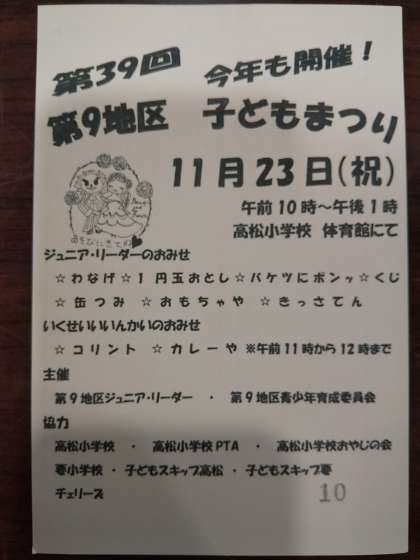 第39回 今年も開催！
第9地区 子どもまつり
11月23日(祝)
午前10時～午後1時
高松小学校 体育館にて
あそびにきてね♥
ジュニア・リーダーのおみせ
☆わなげ☆1円玉おとし☆バケツにポンッ☆くじ
☆缶つみ ☆おもちゃや ☆きっさてん
いくせいいいんかいのおみせ
☆コリント ☆カレーや ※午前11時から12時まで
主催
第9地区ジュニア・リーダー ・ 第9地区青少年育成委員会
協力
高松小学校 ・ 高松小学校PTA ・ 高松小学校おやじの会
要小学校・子どもスキップ高松・子どもスキップ要
チェリーズ
10